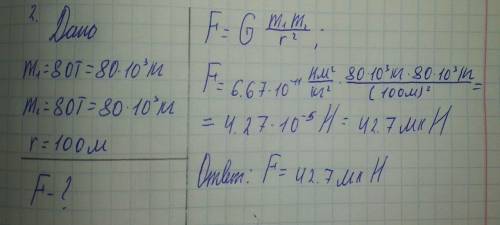 2.
Дано
m₁=80т=80·10³кг
m₁=80т=80·10³кг
r=100м
F-?
F=G m₁m₂/r²;
F=6.67·10⁻¹¹ Нм²/кг² · 80·10³кг·80·10³кг/(100м)²=
=4.27·10⁻⁵Н=42.7мкН
Ответ: F=42.7мкН